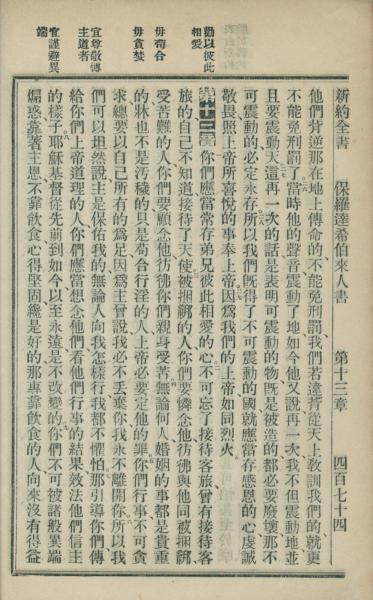 新約全書 保羅達希伯來人書 第十三章 四百七十四
他們背逆那在地上傳命的、不能免刑罰、我們若違背從天上教訓我們的、就更
不能免刑罰了、當時他的聲音震動了地、如今他又說、再一次我不但震動地、並
且要震動天、這再一次的話、是表明可震動的物、旣是被造的、都必要廢壞、那不
可震動的、必定永存、所以我們旣得了不可震動的國、就應當存感恩的心、虔誠
敬畏、照上帝所喜悅的事奉上帝、因爲我們的上帝如同烈火、
第十三章 你們應當常存弟兄彼此相愛的心、不可忘了接待客旅、曾有接待客
旅的、自己不知道接待了天使、被捆綁的人、你們要憐念他、彷彿與他同被捆綁、
受苦難的人、你們要顧念他、彷彿你們親身受苦、無論何人、婚姻的事都是貴重
的、牀也不是污穢的、只是苟合行淫的人、上帝必要定他的罪、你們行事不可貪
求、總要以自己所有的爲足、因爲主曾說、我必不丟棄你、我永不離開你、所以我
們可以坦然說、主是保佑我的、無論人向我怎樣行、我都不懼怕、那引導你們、傳
給你們上帝道理的人、你們應當想念他們、看他們行事的結果、效法他們信主
的樣子、耶穌基督從先前到如今、以至永遠、是不改變的、你們不可被諸般異端
煽惑、靠著主恩不靠飲食、心得堅固、纔是好的、那專靠飲食的人、向來沒有得益
勸以彼此
相愛
毋苟合
毋貪婪
宜尊敬傳
主道者
宜謹避異
端